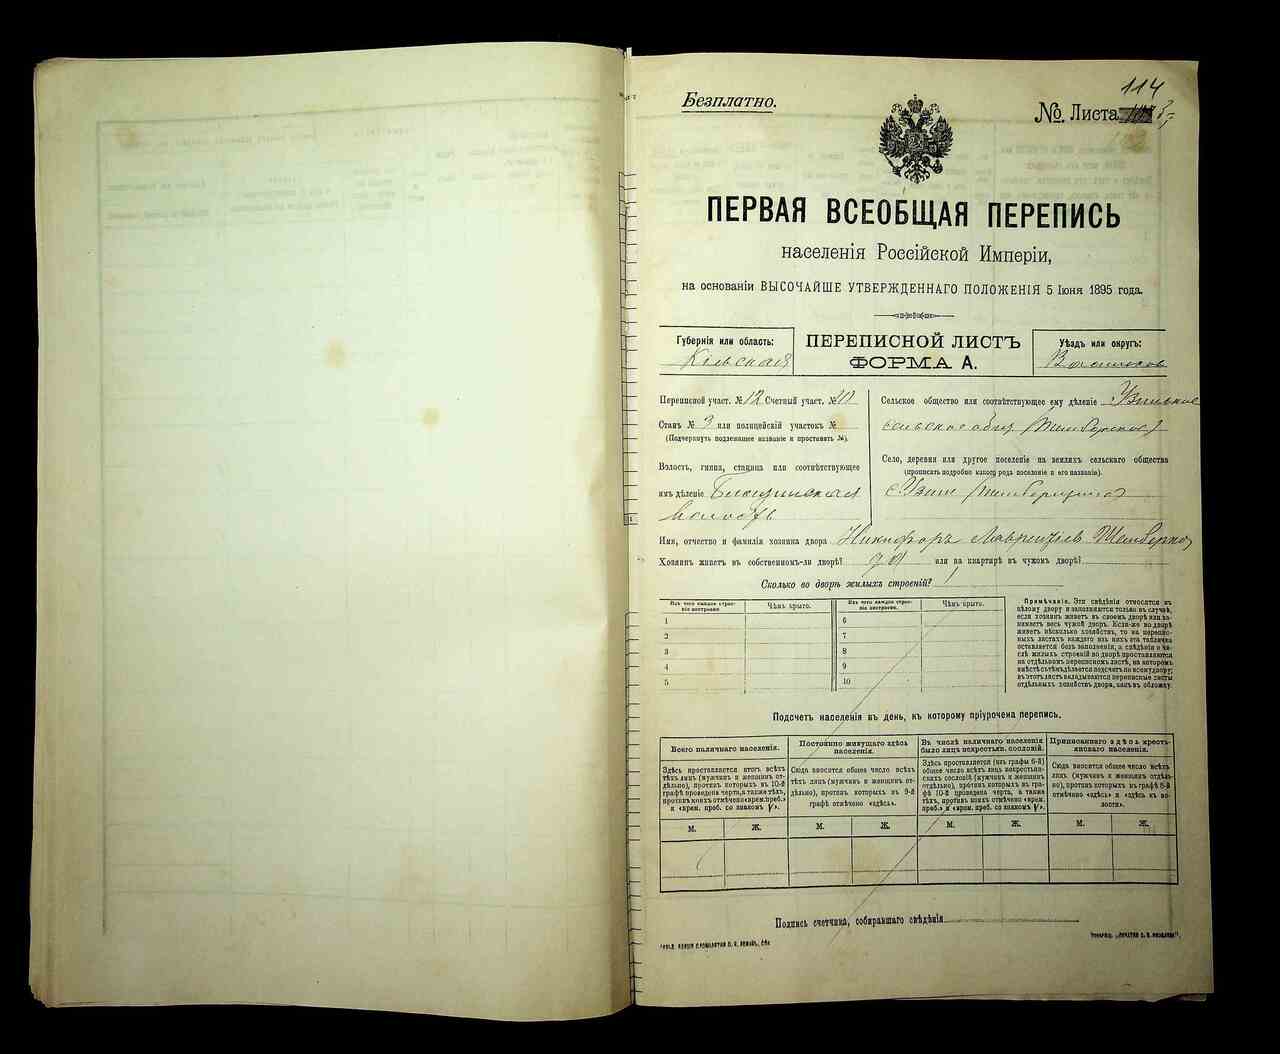 114
Безплатно.
№ Листа
ПЕРВАЯ ВСЕОБЩАЯ ПЕРЕПИСЬ
населенія Россійской Имперіи,
на основаніи ВЫСОЧАЙШЕ УТВЕРЖДЕННАГО ПОЛОЖЕНІЯ 5 Іюня 1895 года.
Губернія или область:
Кіевская
ПЕРЕПИСНОЙ ЛИСТЪ
ФОРМА А.
Уѣздъ или округъ:
Переписной участ. № 12 Счетный участ. №
Станъ № 3 или полицейскій участокъ №
(Подчеркнуть подлежащее названіе и проставить №).
Волость, гмина, станица или соотвѣтствующее
имъ дѣленіе
волость
Сельское общество или соотвѣтствующее ему дѣленіе
сельское общ
Село, деревня или другое поселеніе на земляхъ сельскаго общества
(прописать подробно какого рода поселеніе и его названіе).
с. Узин
Имя, отчество и фамилія хозяина двора Никифоръ
Хозяинъ живетъ въ собственномъ-ли дворѣ? или на квартирѣ въ чужомъ дворѣ?
Сколько во дворѣ жилыхъ строеній? 1
Изъ чего каждое строеніе построено. Чѣмъ крыто. Изъ чего каждое строеніе построено. Чѣмъ крыто.
1 6
2 7
3 8
4 9
5 10
Примѣчаніе. Эти свѣдѣнія относятся къ
цѣлому двору и заполняются только въ случаѣ,
если хозяинъ живетъ въ своемъ дворѣ или за-
нимаетъ весь чужой дворъ. Если-же во дворѣ
живетъ нѣсколько хозяйствъ, то на перепис-
ныхъ листахъ каждаго изъ нихъ эта табличка
оставляется безъ заполненія, а свѣдѣнія о чи-
слѣ жилыхъ строеній во дворѣ проставляются
на отдѣльномъ переписномъ листѣ, на которомъ
вмѣстѣ съ тѣмъ дѣлается подсчетъ по всему двору;
въ этотъ листъ вкладываются переписные листы
отдѣльныхъ хозяйствъ двора, какъ въ обложку.
Подсчетъ населенія въ день, къ которому пріурочена перепись.
Всего наличнаго населенія.
Здѣсь проставляется итогъ всѣхъ
тѣхъ лицъ (мужчинъ и женщинъ от-
дѣльно), противъ которыхъ въ 10-й
графѣ проведена черта, а также тѣхъ,
противъ коихъ отмѣчено «врем. преб.»
и «врем. преб. со знакомъ V».
Постоянно живущаго здѣсь
населенія.
Сюда вносится общее число всѣхъ
тѣхъ лицъ (мужчинъ и женщинъ от-
дѣльно), противъ которыхъ въ 9-й
графѣ отмѣчено «здѣсь».
Въ числѣ наличнаго населенія
было лицъ некрестьян. сословій.
Здѣсь проставляется (изъ графы 6-й)
общее число всѣхъ лицъ некрестьян-
скихъ сословій (мужчинъ и женщинъ
отдѣльно), противъ которыхъ въ гра-
фѣ 10-й проведена черта, а также
тѣхъ, противъ коихъ отмѣчено «врем.
преб.» и «врем. преб. со знакомъ V».
Приписаннаго здѣсь кресть-
янскаго населенія.
Сюда вносится общее число всѣхъ
лицъ (мужчинъ и женщинъ отдѣль-
но), противъ которыхъ въ графѣ 8-й
отмѣчено «здѣсь» и «здѣсь къ во-
лости».
М. Ж. М. Ж. М. Ж. М. Ж.
Подпись счетчика, собиравшаго свѣдѣнія